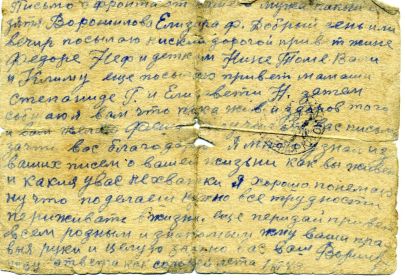 Письмо с фронта от вашего мужа папы и
зятя Ворошилова Елизара Ф. Добрый день или
вечер посылаю низкей дорогой привет жине
Федоре Неф и деткам Нине Томе Вали
и Климу еще посылаю привет мамаши
Степаниде Г. и Елизвети Н. затем
сообщаю я вам что пока жив и здоров того
и вам желаю вас писмо
за что вас благодарю Я много узнал из
ваших писем о вашей жизьни как вы живете
и какия у вас нехватки Я хорошо понемаю
ну что поделаеш нужно все трудности
периживать в жизни еще передай привет
всем родным и знакомым жму ваши пра
выя руки и целую заочно вас ваш Ворошил
жду ответа как соловей лета